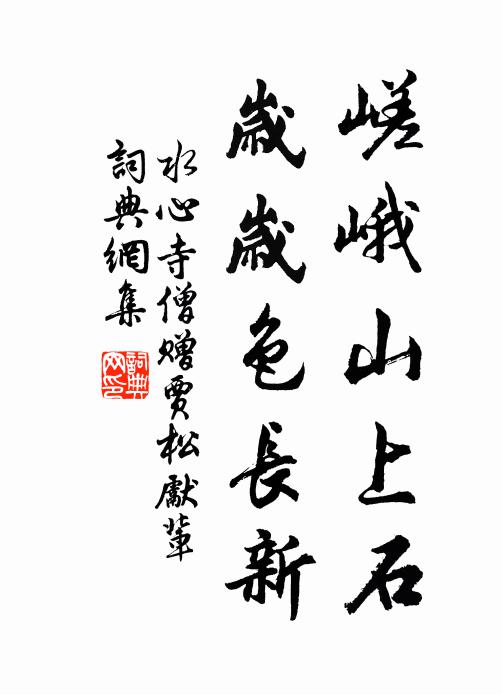 嵯峨山上石
歲歲色長新
水心寺僧贈賈松獻輩
詞典網集
詞典網印